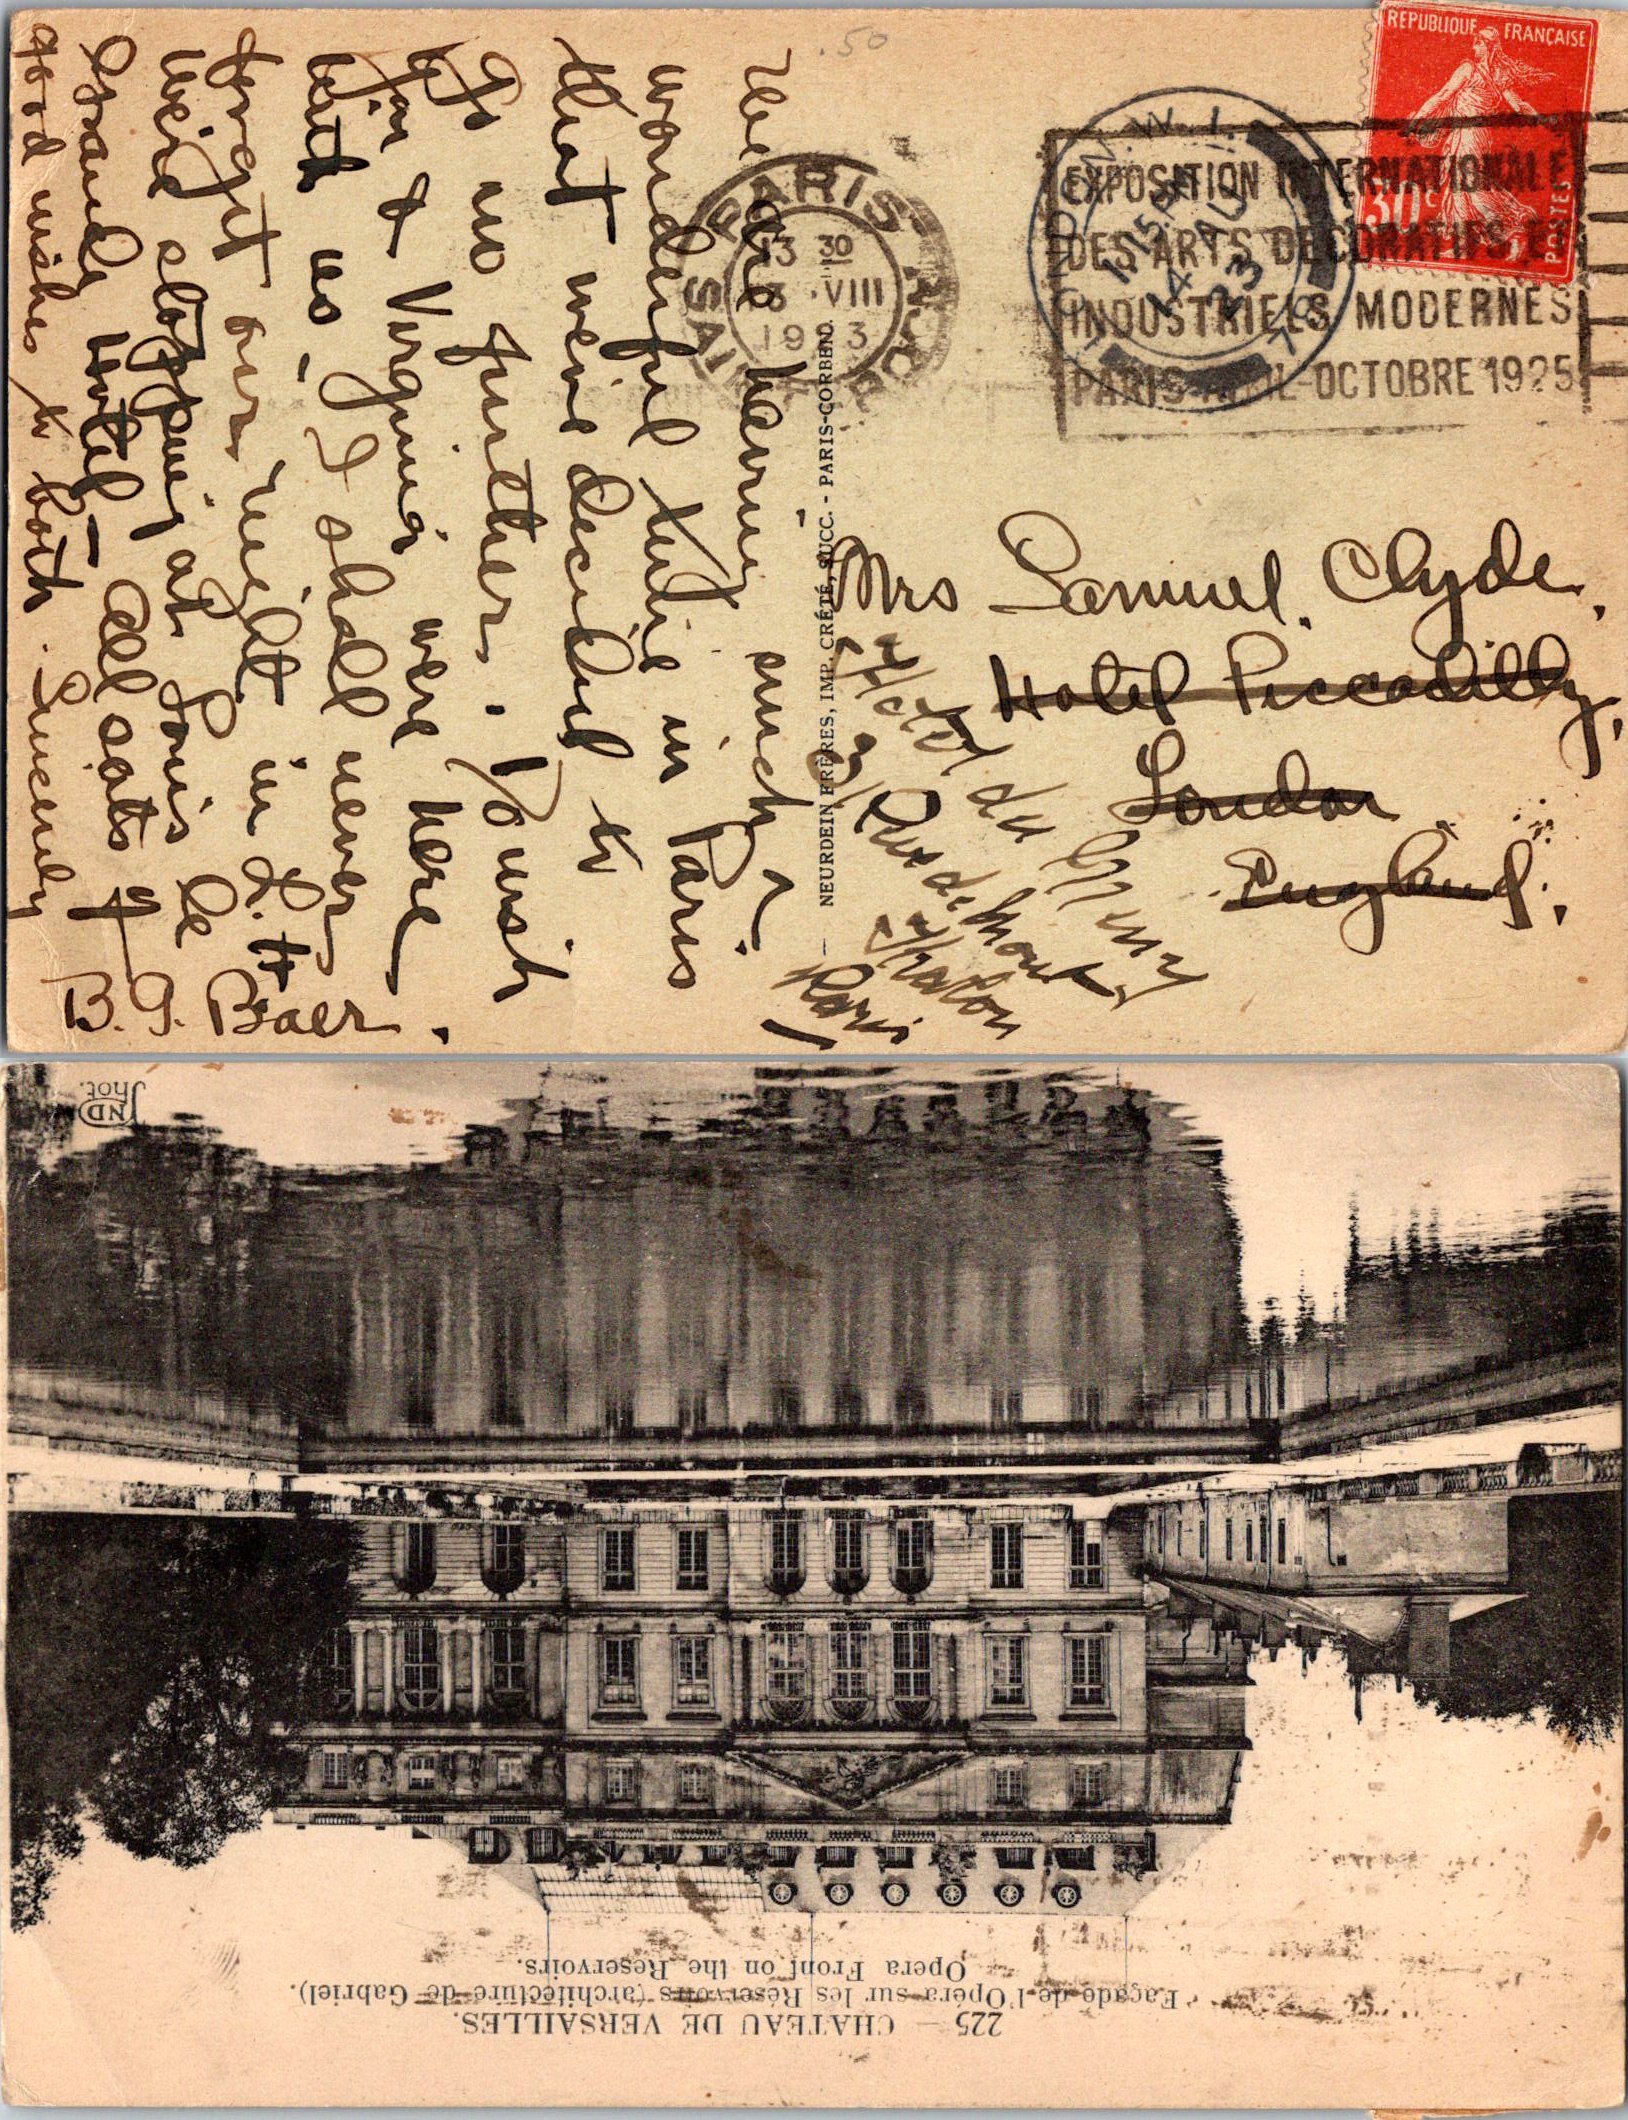 .50
REPUBLIQUE FRANÇAISE
30c
POSTES
PARIS
13 30
13 VIII
19 3
LONDON. W. 1.
11 15 PM
14 AU
23
EXPOSITION INTERNATIONALE
DES ARTS DECORATIFS ET
INDUSTRIELS MODERNES
PARIS AVRIL-OCTOBRE 1925
We are having such a
wonderful time in Paris
that we've decided to
go no further. Do wish
you & Virginia were here
with us, I shall never
forget our night in
We're stopping at Louis le
Grande Hotel - All sorts of
good wishes to both. Sincerely
B. G. Baer.
NEURDEIN FRÈRES, IMP. CRÉTÉ, SUCC. - PARIS-CORBEIL
Mrs Samuel Clyde,
Hotel Piccadilly,
London
England.
Hotel du
3 Rue de Mont
Thabor
Paris
225 — CHATEAU DE VERSAILLES.
Façade de l'Opéra sur les Réservoirs (architecture de Gabriel).
Opera Front on the Reservoirs.
ND
Phot.